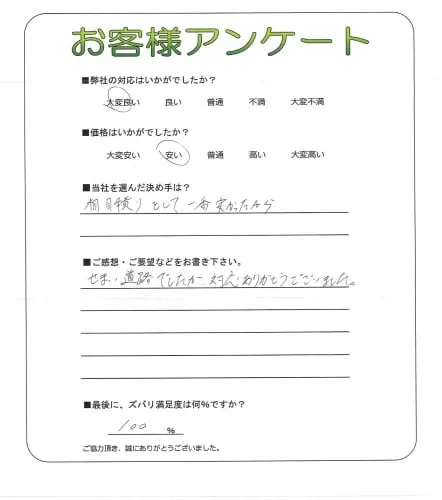 お客様アンケート
■弊社の対応はいかがでしたか?
大変良い 良い 普通 不満 大変不満
■価格はいかがでしたか?
大変安い 安い 普通 高い 大変高い
■当社を選んだ決め手は?
相見積りとして、一番安かったから
■ご感想・ご要望などをお書き下さい。
せまい道路でしたが、対応ありがとうございました。
■最後に、ズバリ満足度は何%ですか?
100 %
ご協力頂き、誠にありがとうございました。